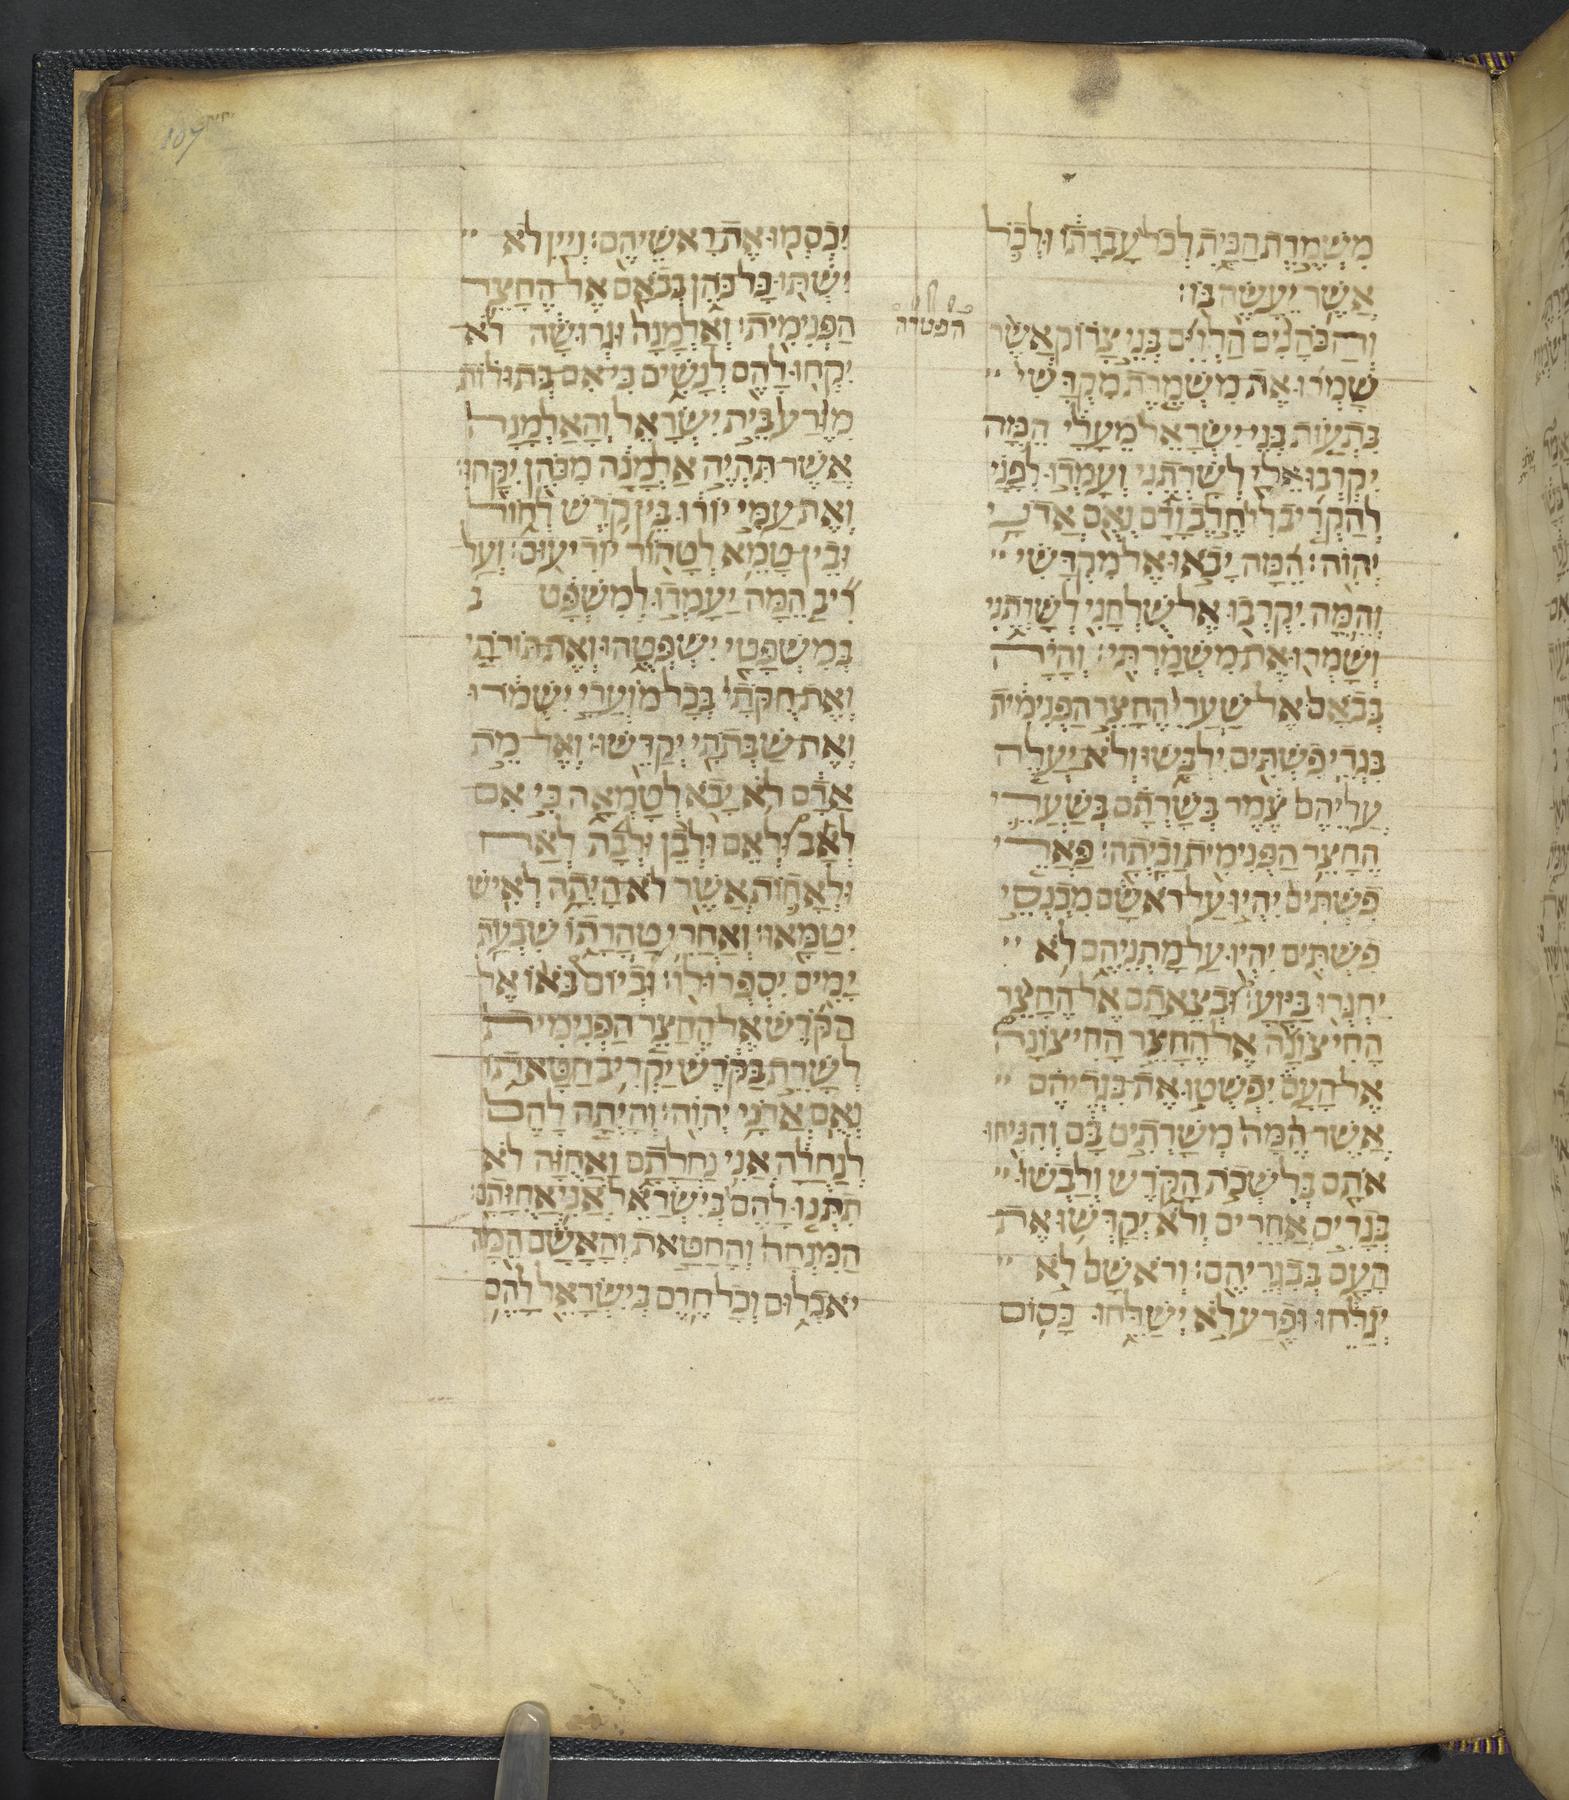 107
משמרת הבית לכל עבדתו ולכל
אשר יעשה בו׃
הפטרה
והכהנים הלוים בני צדוק אשר
שמרו את משמרת מקדשי
בתעות בני ישראל מעלי המה
יקרבו אלי לשרתני ועמדו לפני
להקריב לי חלב ודם נאם אדני
יהוה׃ המה יבאו אל מקדשי
והמה יקרבו אל שלחני לשרתני
ושמרו את משמרתי׃ והיה
בבאם אל שערי החצר הפנימית
בגדי פשתים ילבשו ולא יעלה
עליהם צמר בשרתם בשערי
החצר הפנימית וביתה׃ פארי
פשתים יהיו על ראשם מכנסי
פשתים יהיו על מתניהם לא
יחגרו ביזע׃ ובצאתם אל החצר
החיצונה אל החצר החיצונה
אל העם יפשטו את בגדיהם
אשר המה משרתים בם והניחו
אותם בלשכת הקדש ולבשו
בגדים אחרים ולא יקדשו את
העם בבגדיהם׃ וראשם לא
יגלחו ופרע לא ישלחו כסום
יכסמו את ראשיהם׃ ויין לא
ישתו כל כהן בבאם אל החצר
הפנימית׃ ואלמנה וגרושה לא
יקחו להם לנשים כי אם בתולות
מזרע בית ישראל והאלמנה
אשר תהיה אלמנה מכהן יקחו׃
ואת עמי יורו בין קדש לחול
ובין טמא לטהור יודיעום׃ ועל
ריב המה יעמדו למשפט ב
במשפטי ישפטהו ואת תורתי
ואת חקתי בכל מועדי ישמרו
ואת שבתתי יקדשו׃ ואל מת
אדם לא יבא לטמאה כי אם
לאב ולאם ולבן ולבת לאח
ולאחות אשר לא היתה לאיש
יטמאו׃ ואחרי טהרתו שבעת
ימים יספרו לו׃ וביום באו אל
הקדש אל החצר הפנימית
לשרת בקדש יקריב חטאתו
נאם אדני יהוה׃ והיתה להם
לנחלה אני נחלתם ואחזה לא
תתנו להם בישראל אני אחזתם׃
המנחה והחטאת והאשם המה
יאכלום וכל חרם בישראל להם